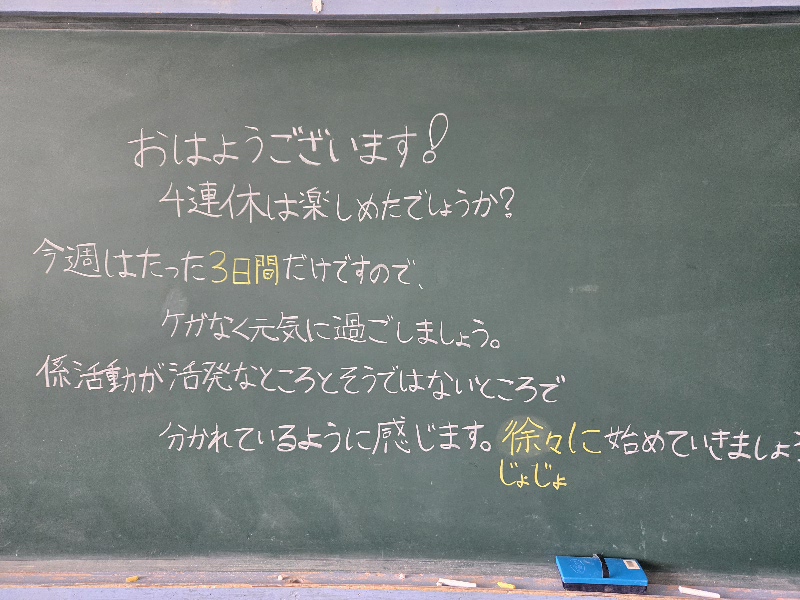 おはようございます!
4連休は楽しめたでしょうか?
今週はたった3日間だけですので、
ケガなく元気に過ごしましょう。
係活動が活発なところとそうではないところで
分かれているように感じます。徐々に始めていきましょう
じょじょ